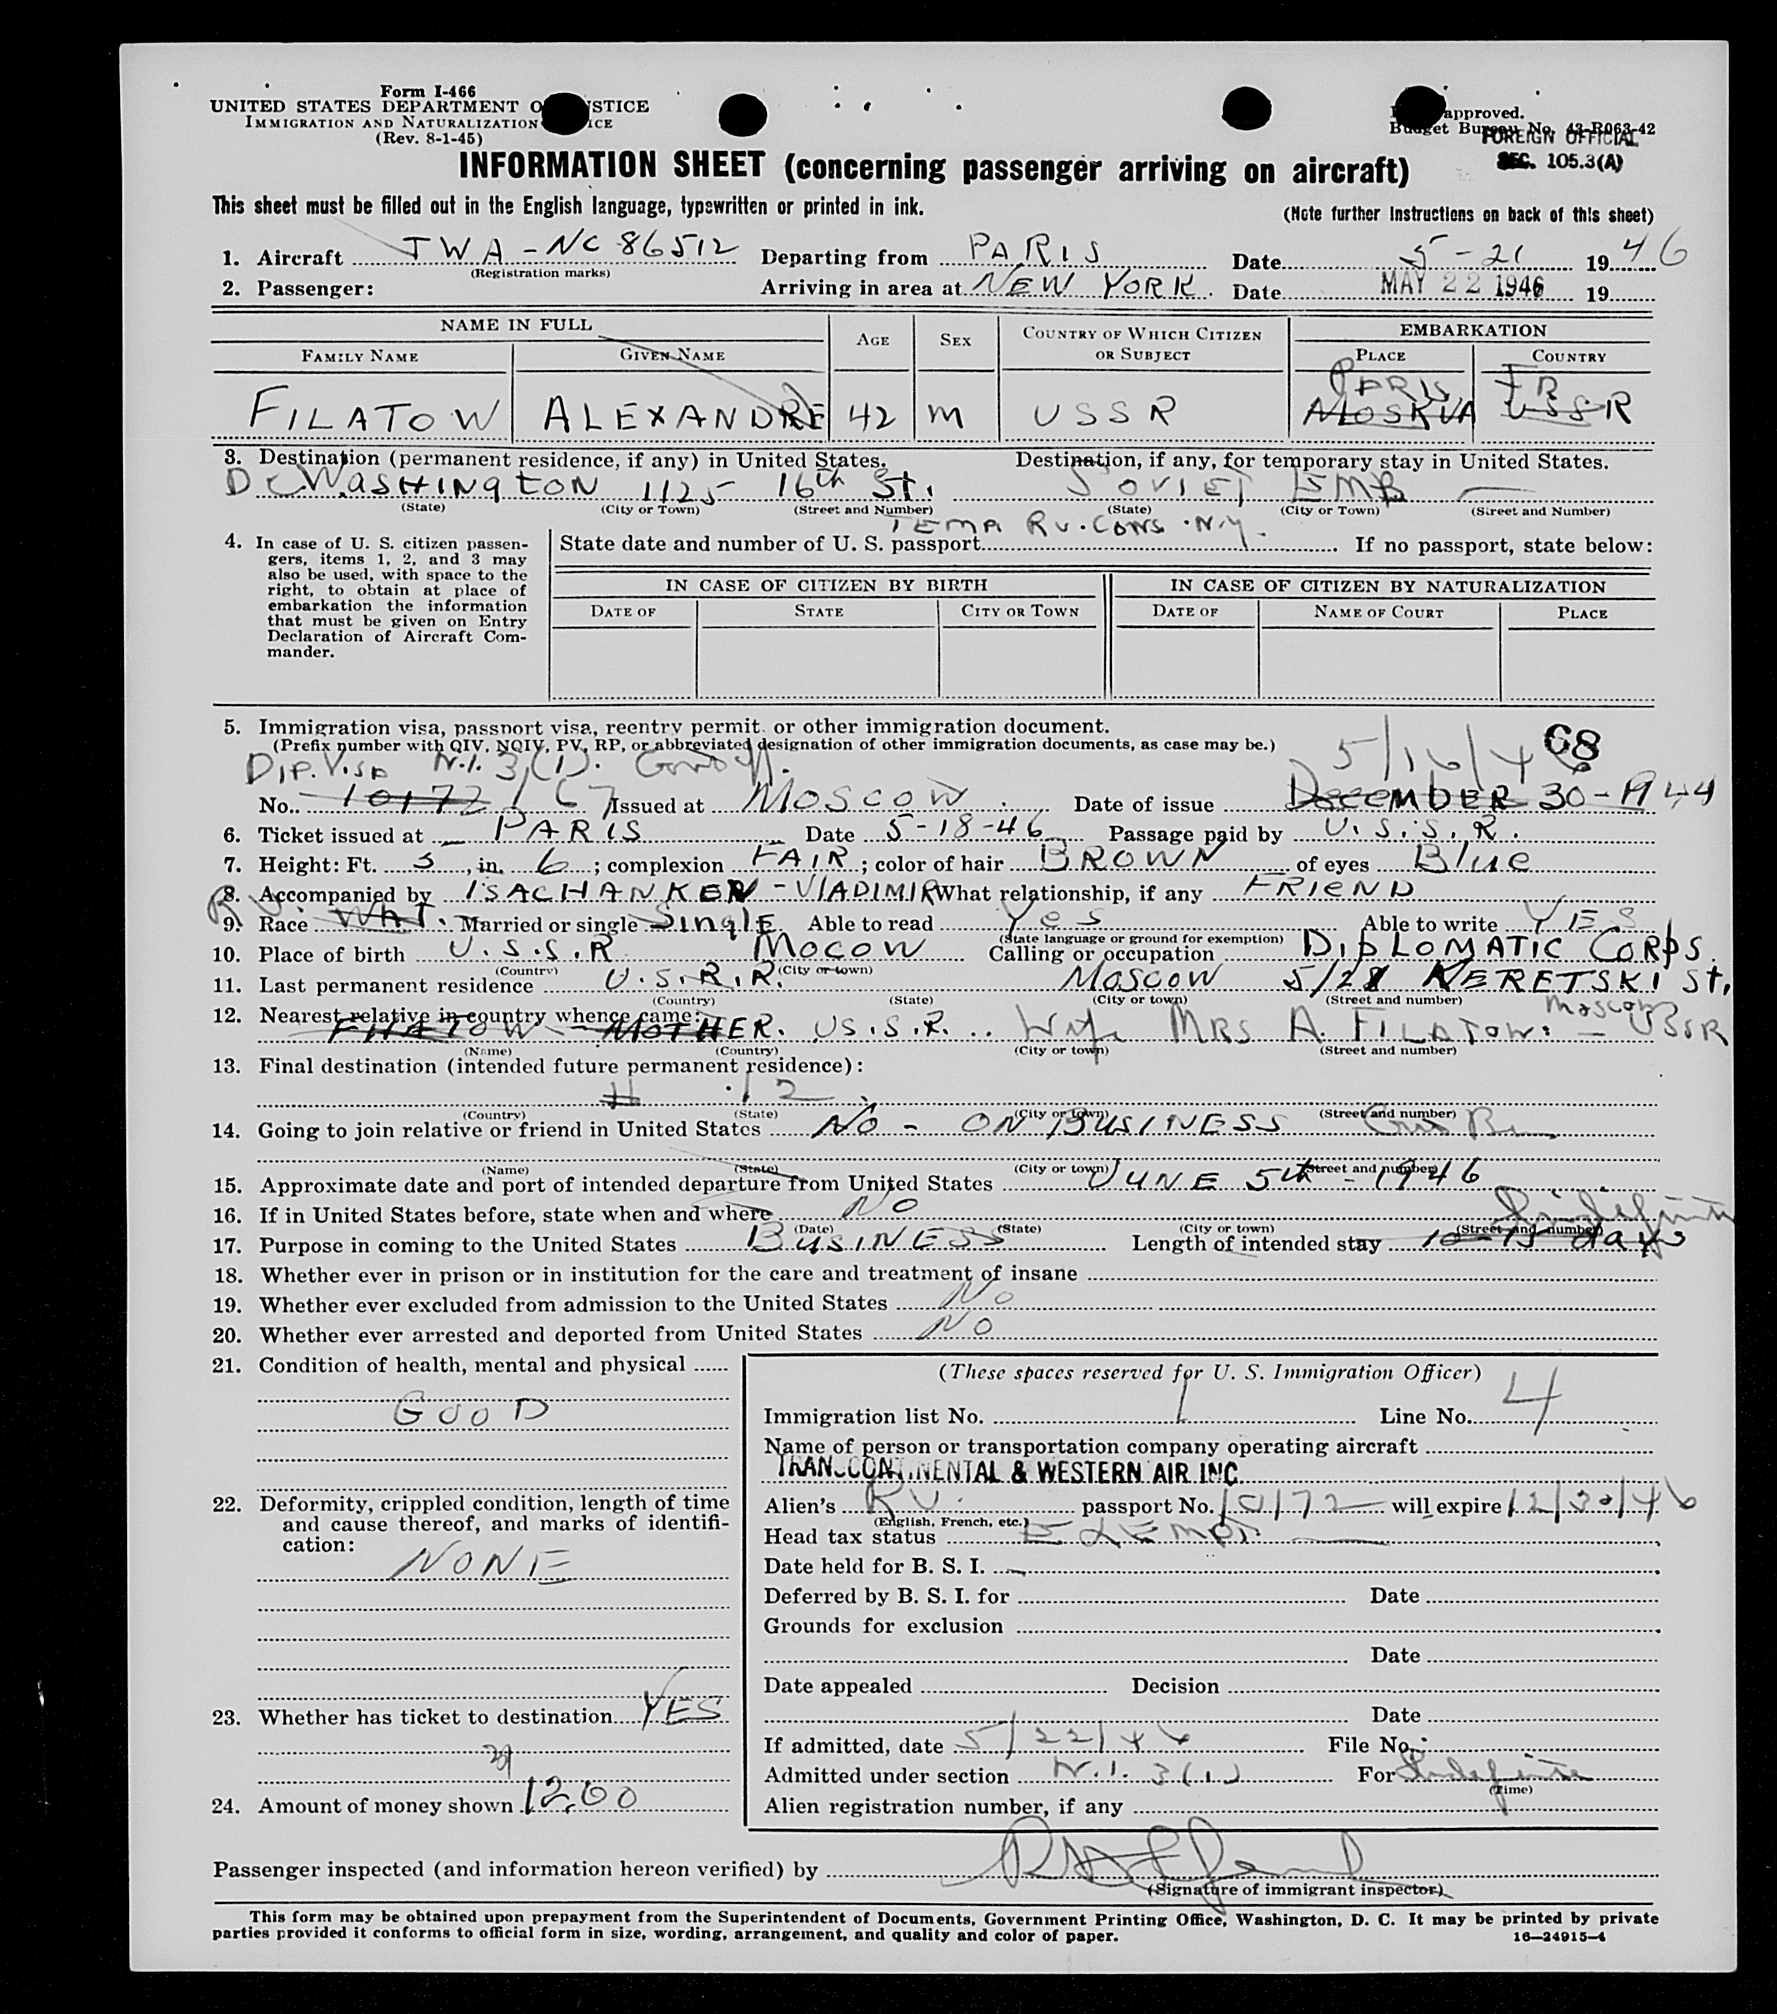 Form I-466
UNITED STATES DEPARTMENT O STICE
IMMIGRATION AND NATURALIZATION ICE
(Rev. 8-1-45)
approved.
Budget Bureau No. 43-R063-42
FOREIGN OFFICIAL
SEC. 105.3(A)
INFORMATION SHEET (concerning passenger arriving on aircraft)
This sheet must be filled out in the English language, typewritten or printed in ink.
(Note further instructions on back of this sheet)
1. Aircraft TWA - NC 86512 Departing from PARIS Date 5-21 1946
(Registration marks)
2. Passenger: Arriving in area at NEW YORK Date MAY 22 1946 19
NAME IN FULL AGE SEX COUNTRY OF WHICH CITIZEN OR SUBJECT EMBARKATION
FAMILY NAME GIVEN NAME PLACE COUNTRY
PARIS FR
FILATOW ALEXANDRE 42 M USSR MOSKVA USSR
3. Destination (permanent residence, if any) in United States. Destination, if any, for temporary stay in United States.
DC WASHINGTON 1125 16th St. SOVIET EMB
(State) (City or Town) (Street and Number) (State) (City or Town) (Street and Number)
TEMP. RU. CONS. N.Y.
4. In case of U. S. citizen passengers, items 1, 2, and 3 may also be used, with space to the right, to obtain at place of embarkation the information that must be given on Entry Declaration of Aircraft Commander.
State date and number of U. S. passport If no passport, state below:
IN CASE OF CITIZEN BY BIRTH IN CASE OF CITIZEN BY NATURALIZATION
DATE OF STATE CITY OR TOWN DATE OF NAME OF COURT PLACE
5. Immigration visa, passport visa, reentry permit or other immigration document.
(Prefix number with QIV, NQIV, PV, RP, or abbreviated designation of other immigration documents, as case may be.)
68
Dip. Visa N.I. 3(1). 5/16/46
No. 10172 167 Issued at MOSCOW Date of issue DECEMBER 30-1944
6. Ticket issued at PARIS Date 5-18-46 Passage paid by U.S.S.R.
7. Height: Ft. 5, in. 6; complexion FAIR; color of hair BROWN of eyes Blue
8. Accompanied by ISACHANKEN - VlADIMIR What relationship, if any FRIEND
9. Race Wht. Married or single SinglE Able to read Yes Able to write YES
(State language or ground for exemption)
10. Place of birth U.S.S.R MOCOW Calling or occupation DIPLOMATIC CORPS.
(Country) (City or town)
11. Last permanent residence U.S.R.R. MOSCOW 5/28 NERETSKI St.
(Country) (State) (City or town) (Street and number)
12. Nearest relative in country whence came:
FILATOW - MOTHER. US.S.R. Wife MRS A. FILATOW. - Moscow USSR
(Name) (Country) (City or town) (Street and number)
13. Final destination (intended future permanent residence):
# 12
(Country) (State) (City or town) (Street and number)
14. Going to join relative or friend in United States NO - ON BUSINESS
(Name) (State) (City or town) (Street and number)
15. Approximate date and port of intended departure from United States JUNE 5th - 1946
16. If in United States before, state when and where NO
(Date) (State) (City or town) (Street and number)
Indefinite
17. Purpose in coming to the United States BUSINESS Length of intended stay 10-15 days
18. Whether ever in prison or in institution for the care and treatment of insane
19. Whether ever excluded from admission to the United States No
20. Whether ever arrested and deported from United States NO
21. Condition of health, mental and physical
GOOD
22. Deformity, crippled condition, length of time and cause thereof, and marks of identification:
NONE
23. Whether has ticket to destination YES
24. Amount of money shown 1200
(These spaces reserved for U. S. Immigration Officer)
Immigration list No. 1 Line No. 4
Name of person or transportation company operating aircraft
TRANSCONTINENTAL & WESTERN AIR INC.
Alien's RU. passport No. 10172 will expire 12/30/46
(English, French, etc.)
Head tax status EXEMPT
Date held for B. S. I.
Deferred by B. S. I. for Date
Grounds for exclusion
Date
Date appealed Decision
Date
If admitted, date 5/22/46 File No.
Admitted under section N.I. 3(1) For Indefinite
(Time)
Alien registration number, if any
Passenger inspected (and information hereon verified) by
(Signature of immigrant inspector)
This form may be obtained upon prepayment from the Superintendent of Documents, Government Printing Office, Washington, D. C. It may be printed by private
parties provided it conforms to official form in size, wording, arrangement, and quality and color of paper.
16—24915-4